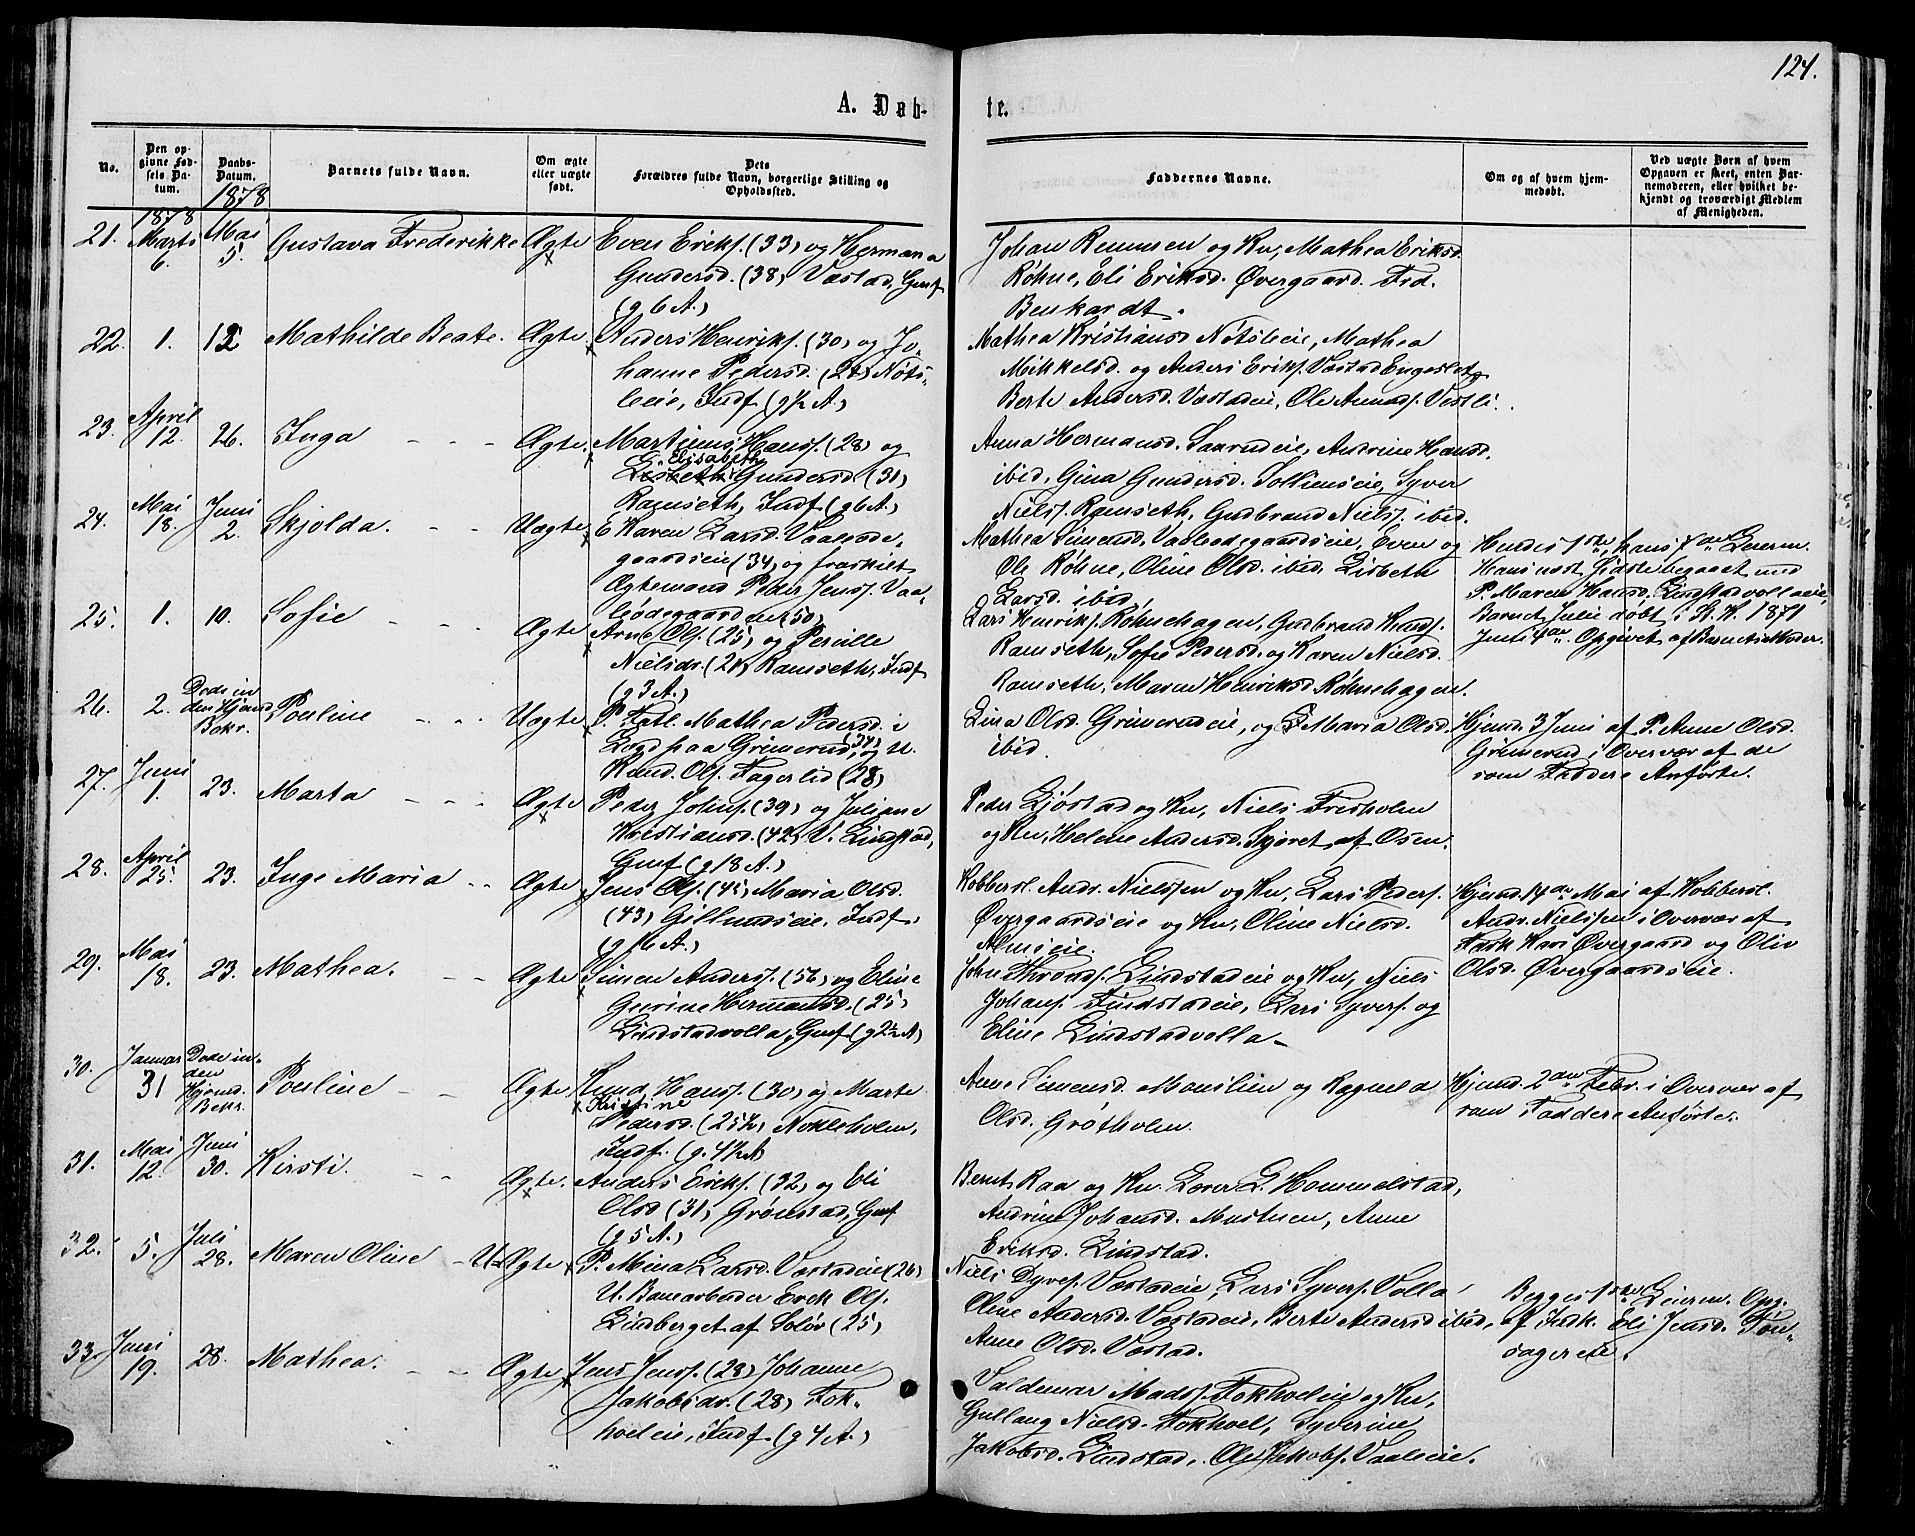 124.
A. Døb-
te.
No.
Den op-
givne Fød-
sels Da-
tum.
Daabs-
Datum.
Barnets fulde Navn.
Om ægte
eller uægte
født.
Dets
Forældres fulde Navn, borgerlige Stilling og
Opholdssted.
Faddernes Navne.
Om og af hvem hjem-
medøbt.
Ved uægte Børn af hvem
Opgaven er skeet, enten Bar-
nemoderen, eller hvilket be-
kjendt og troværdigt Medlem
af Menigheden.
1878
1878
21. Marts 6. Mai 5. Gustava Frederikke Ægte
Even Eriks. (33) og Hermana
Gundersd. (38) Vastad, Gmf
(g 6 A.)
Johan Remmen og Kv, Mathea Eriksd.
Røhne, Eli Eriksd. Øvergaard. Frd.
Benkardt.
22. 1. 12 Mathilde Beate. Ægte
Anders Henriks. (30) og Jo-
hanne Pedersd. Nøts-
leie, Indf (g ½ A.)
Mathea Kristiansd Nøtsleie, Mathea
Mikkelsd. og Anders Eriks. Vastad
Berte Andersd. Vastadeie, Ole Amunds. Vestli.
23. April 12. 26. Inga - - - Ægte.
Martinus Hanss. (28) og
Elisabeth
Lisbeth Gundersd (31)
Ramseth, Indf (g 6 A.)
Anna Hermansd. Saarudeie, Andrine Hansd.
ibid, Gina Gundersd. Sollienseie, Syver
Niels. Ramseth, Gudbrand Niels. ibid.
24. Mai 18. Juni 2. Skjolda. - - Uægte
E Karen Larsd. Vaaløde-
gaardseie (34) og fraskilt
Ægtemand Peder Jens. Vaa-
lødegaard (50)
Mathea Simensd. Vaalødegaardseie, Even og
Ole Røhne, Oline Olsd. ibid, Lisbeth
Larsd. ibid,
Hendes 1ste, hans Leierm.
Hans næst sidste begaaet med
P. Maren Hansd. Lindstadvollaeie,
Barnet Julie døbt i 1871
Juni 4de. Opgivet af Barnets Moder.
25. 1. 10. Sofie - - - Ægte
Arne Ols. (25) og Pernille
Nielsdr. Ramseth, Indf
(g 3 A.)
Lars Henriks. Røhnehagen, Gudbrand Knuds.
Ramseth, Sofie Pedersd. og Karen Nielsd.
Ramseth, Maren Henriksd Røhnehagen.
26. 2. Døde in
den Hjemd.
Bekr. Pouline - - - Uægte
P. Fatl. Mathea Pedersd. i
Legd paa Grimerud, (34) og U.
Knud. Ols. Fagerlid (28)
Lina Olsd. Grimerudeie, og Maria Olsd.
ibid.
Hjemd. 3 Juni af P. Anne Olsd.
Grimerud i Overvær af de
som Faddere Anførte.
27. Juni 1. 23. Marta - - - Ægte
Peder Johns. (39) og Juliane
Kristiansd. (42) V. Lindstad,
Gmf (g 18 A.)
Peder Ljøstad og Kv, Niels Fresholm
og Kv, Helene Andersd. Skjøret af Osen.
28. April 25. 23. Inge Maria - - Ægte
Jens Ols. (45) Maria Olsd.
(43) Gillundseie, Indf.
(g 16 A.)
Kobbersl. Andr. Nielssen og Kv, Lars Peders.
Øvergaardseie og Kv, Oline Nielsd.
Almseie.
Hjemd. 14de Mai af Kobbersl.
Andr. Nielssen i Overvær af
Kari Øvergaard og Oliv
Olsd. Øvergaardseie.
29. Mai 18. 23. Mathea. - - Ægte
Simen Anders. (56) og Eline
Gurine Hermansd. (25)
Lindstadvolla, Gmf (g 2½ A)
John Thronds. Lindstadeie og Kv, Niels
Johans. Lindstadeie, Lars Syvers. og
Eline Lindstadvolla.
30. Januar 31 Døde in-
den
Hjemd.
Bekr. Pouline - - Ægte
Knud Hans. (30) og Marte
Kristine
Pedersd. (25½) Nokleholm,
Indf. (g. 4½ A)
Anne Simensd. Monilien og Ragnela
Olsd. Grøtholm.
Hjemd. 2den Febr. i Overvær af
som Faddere Anførte.
31. Mai 12. Juni 30. Kirsti. - - Ægte.
Anders Eriks. (32) og Eli
Olsd (31) Grønstad, Gmf
(g 5 A.)
Bernt Raa og Kv. Lærer L. Hommelstad,
Andrine Johansd. Mustuen, Anne
Eriksd. Lindstad.
32. 5. Juli 28. Maren Oline - U-Ægte
P. Mina Larsd. Vastadeie (26)
U. Banearbeider Erik Ols.
Lindberget af Solør (25)
Niels Dyres. Vastadeie, Lars Syvers. Volla
Oline Andersd. Vastadeie, Berte Andersd ibid,
Anne Olsd. Vastad.
Begges 1ste Leierm. Opg.
af Indk. Eli Jensd. Ton-
sagereie.
33. Juni 19. 28. Mathea. - - Ægte
Jens Jens. (28) Johanne
Jakobsdr. (28) Fok-
hoeleie, Indf (g 4 A.)
Valdemar Mads. Fokhoeleie og Kv,
Gullaug Nielsd. Fokhoel, Syverine
Jakobsd. Lindstad, Ole Jakobs. Vaaleeie.